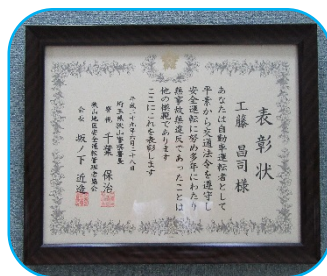 表彰状
工藤 昌司 様
あなたは自動車運転者として
平素から交通法令を遵守し
安全運転に努め多年にわたり
無事故無違反であったことは
他の模範であります
ここにこれを表彰します
平成二十九年六月二十八日
埼玉県狭山警察署長
警視 千葉 保治
狭山地区安全運転管理者協会
会長 坂ノ下 近造